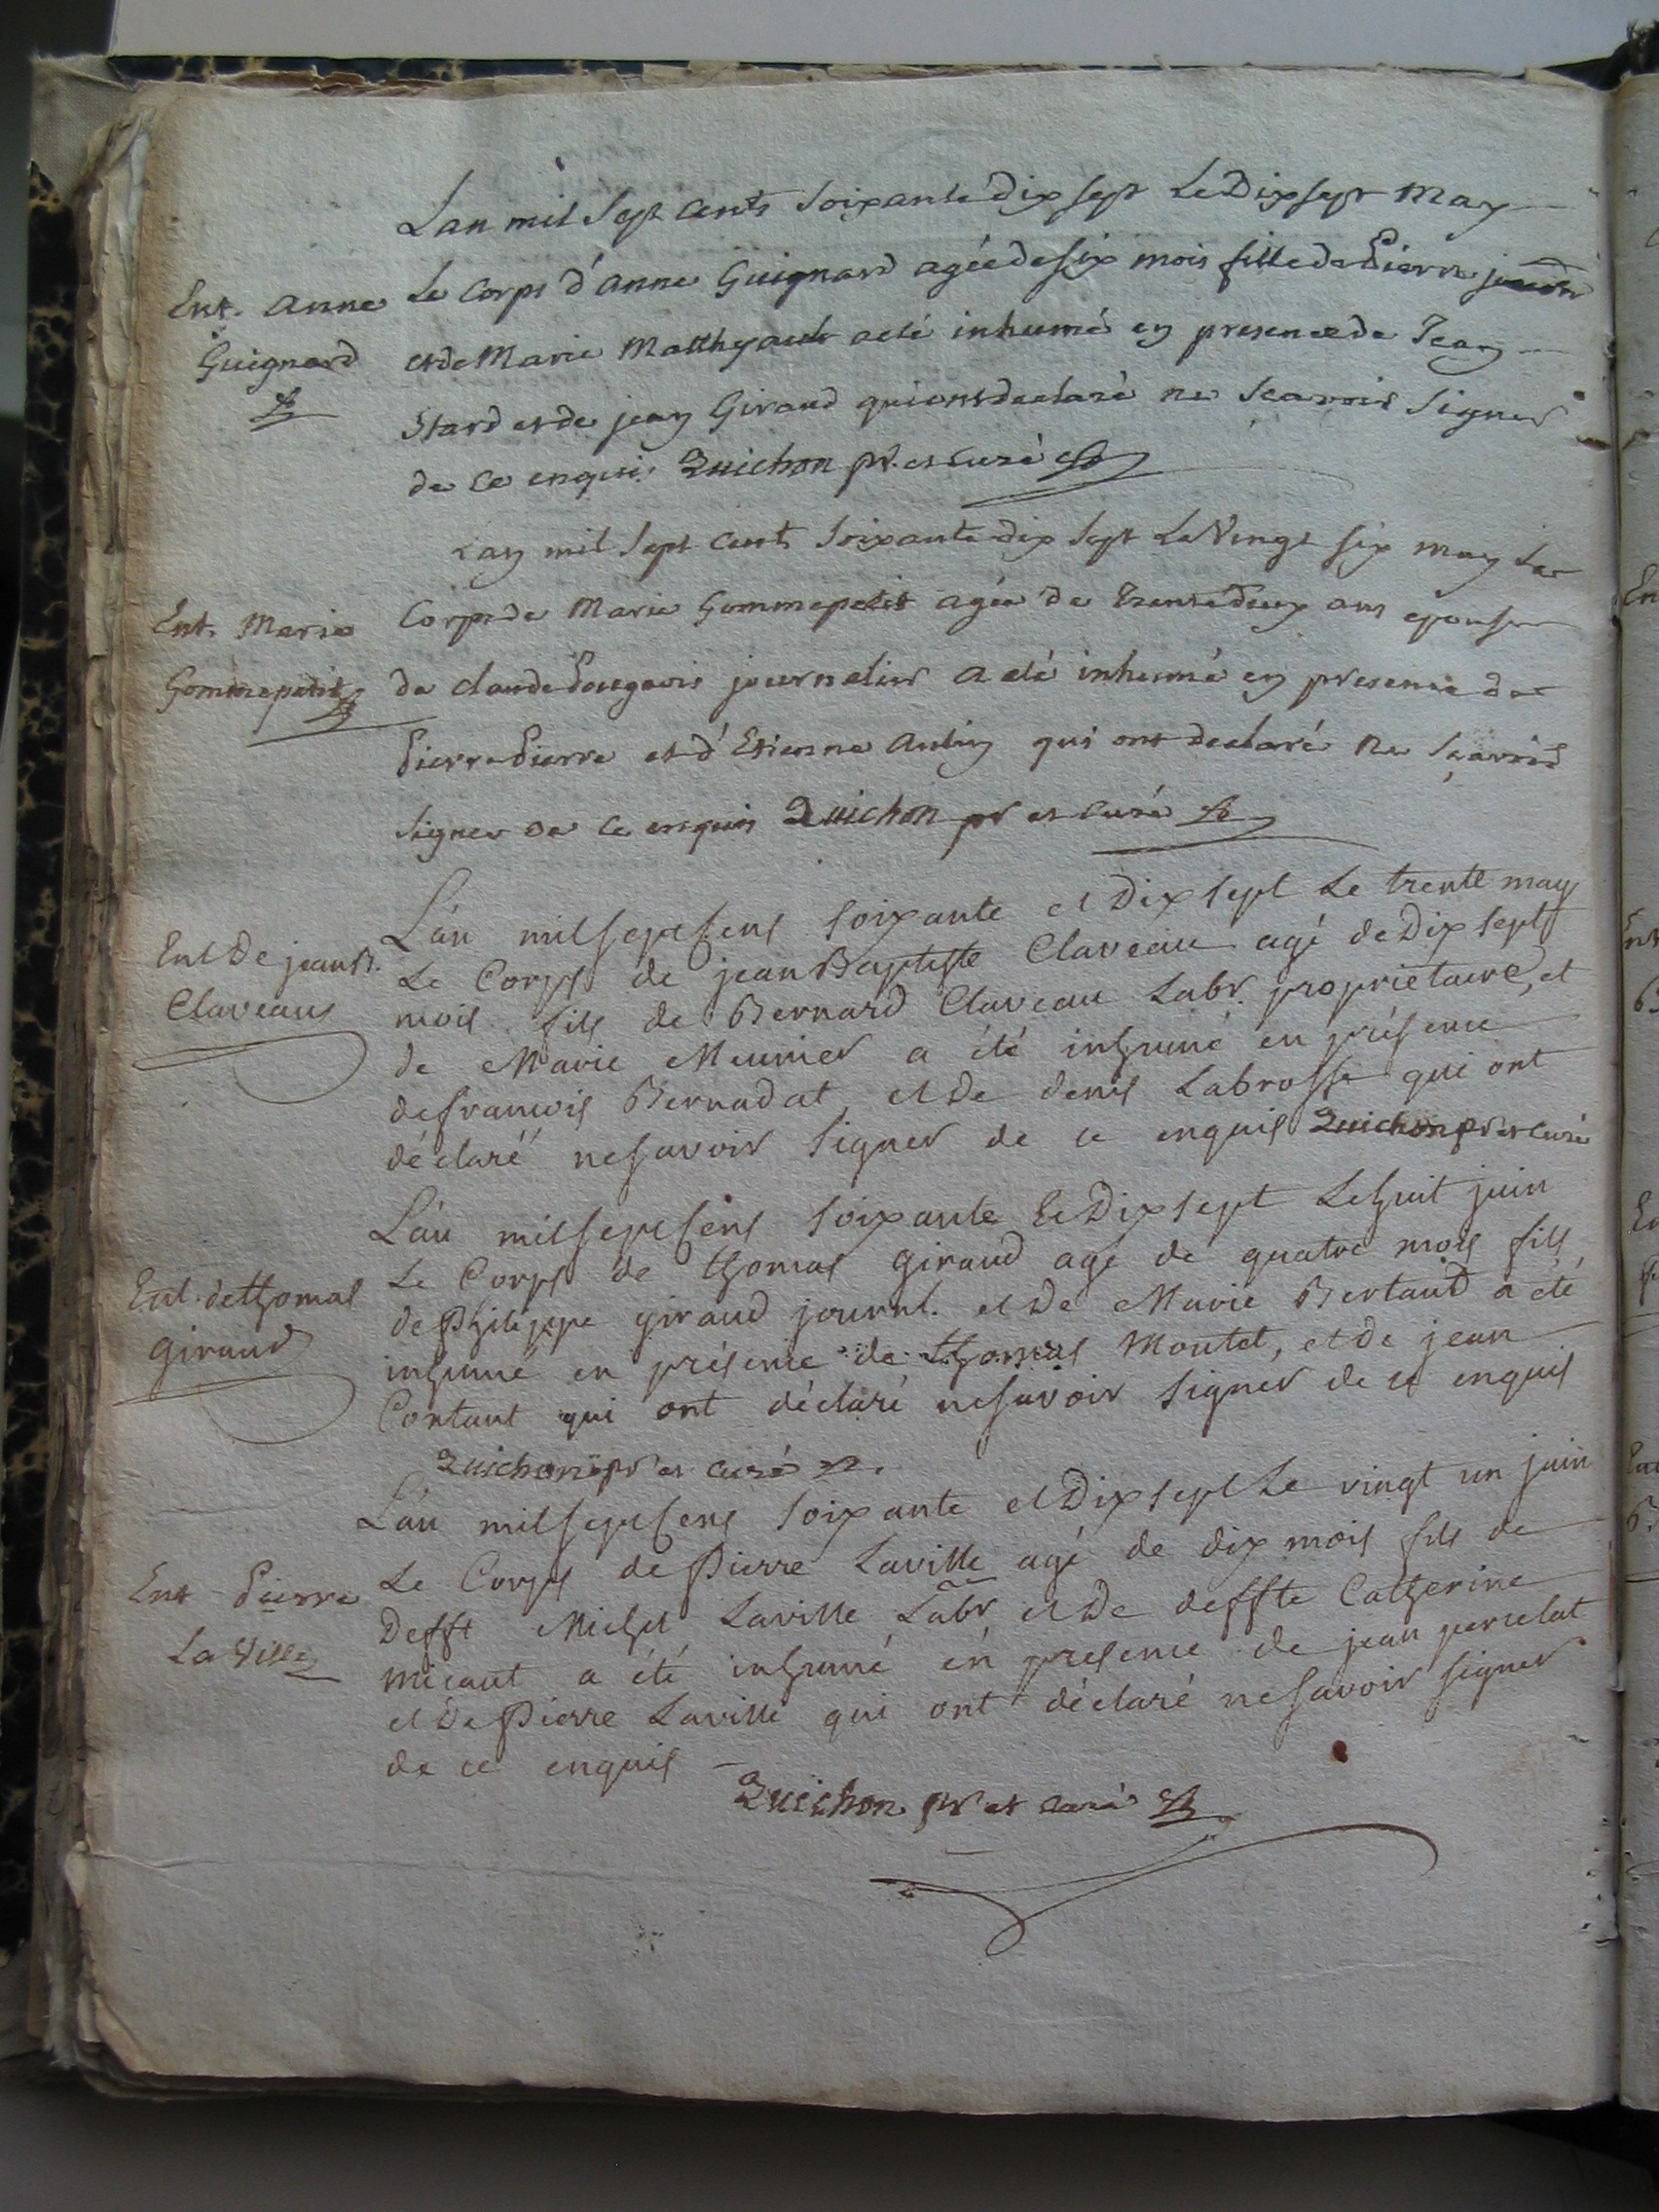 Lan mil sept cents soixante dix sept le Dix sept may
Ent. anne
Guignard
le corps d'anne Guignard agée de six mois fille de Pierre
et de Marie Matthyault a eté inhumé en presence de Jean
Stard et de jean Giraud qui ont declaré ne scavoir signer
de ce enquis Quichon ptr. et curé
Lan mil sept cents soixante dix sept le Vingt six may le
Ent. Marie
Gommepetit
corps de Marie Gommepetit agée de trente deux ans epouse
de claude Pougavis journalier a eté inhumé en presence de
Pierre Pierre et d'Etienne Aubin qui ont declaré ne sçavoir
signer de ce enquis Quichon ptr et curé
L'an mil sept sens soixante et dix sept le trente may
Ent De jean B.
Claveau
le Corps de jean Baptiste Claveau agé de Dix sept
mois fils de Bernard Claveau Labr. proprietaire, et
de Marie Meunier a été inhumé en présence
de francois Bernadat, et de denis Labrosse qui ont
déclaré ne savoir signer de ce enquis Quichon ptr et curé
L'an mil sept sens soixante et Dix sept le huit juin
Ent. de thomas
giraud
le Corps de thomas giraud agé de quatre mois fils
de Philippe giraud journl. et de Marie Bertaud a été
inhumé en présence de thomas Moutet, et de jean
Contant qui ont déclaré ne savoir signer de ce enquis
Quichon ptr et curé
L'an mil sept sens soixante et Dix sept le vingt un juin
Ent Pierre
La Ville
le Corps de Pierre Laville agé de dix mois fils de
Defft Michel Laville Labr et de deffte Catherine
micaut a été inhumé en presence de jean percelat
et de Pierre Laville qui ont déclaré ne savoir signer
de ce enquis
Quichon ptr et curé